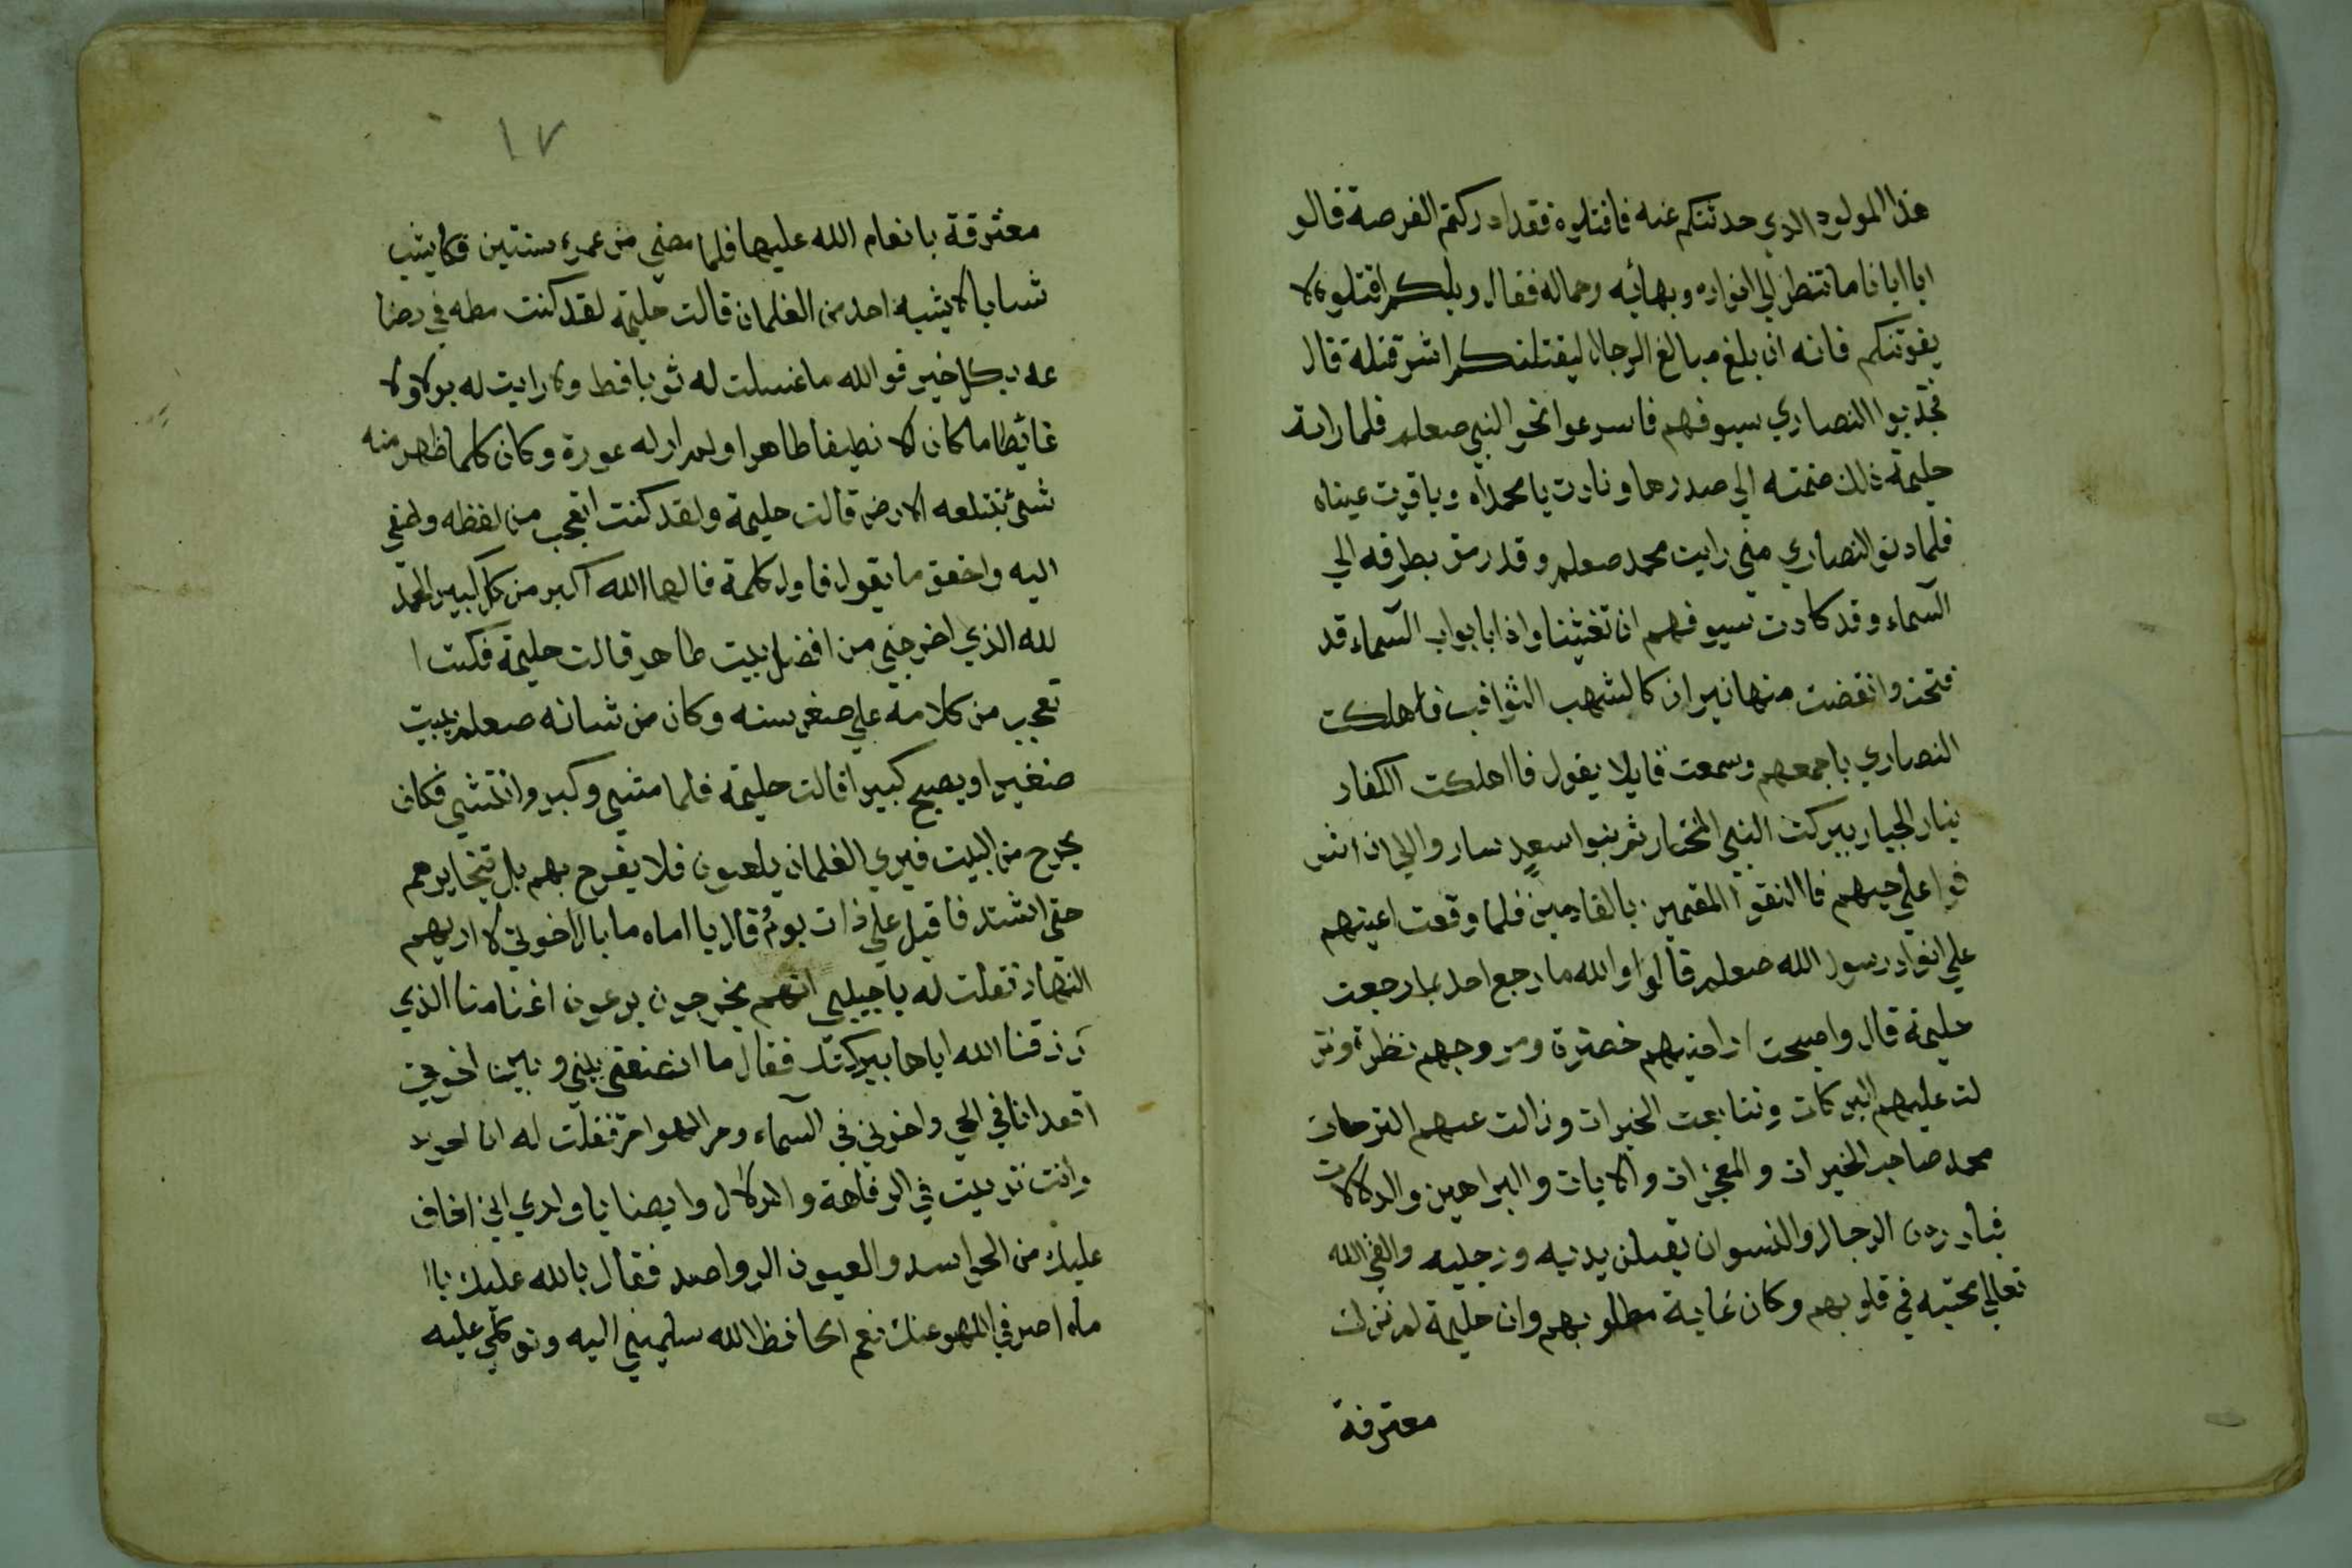 هذا المولود الذي حدثتكم عنه فاقتلوه فقد ادركتم الفرصة قالو
ايا ابانا ما تنظر الي انواره وبهائه وجماله فقال ويلكم اقتلوه لا
يفوتنكم فانه ان بلغ مبالغ الرجال ليقتلنكم اشر قتلة قال
فجذبوا النصاري سيوفهم فاسرعوا نحو النبي صعلم فلما راته
حليمة ذلك ضمته الي صدرها ونادت يا محمداه وياقرت عيناه
فلما دنو النصاري مني رايت محمد صعلم وقد رمق بطرفه الي
السماء وقد كادت سيوفهم ان تغشينا واذا بابواب السماء قد
فتحت وانقضت منها نيران كالشهب الثواقب فاهلكت
النصاري باجمعهم وسمعت قايلا يقول فااهلكت الكفار
بنار الجبار ببركت النبي المختار ثم بنوا سعدٍ سار والي ان اشر
فوا علي حيهم فاالتقوا المقيمين بالقادمين فلما وقعت اعينهم
علي انوار رسول الله صعلم قالوا والله ما رجع احد بما رجعت
حليمة قال واصبحت اراضيهم خضرة ومروجهم نظرة ونز
لت عليهم البركات وتتابعت الخيرات وزالت عنهم الترحات
محمد صاحب الخيرات والمعجزات والايات والبراهين والدلالات
فبادرت الرجال والنسوان يقبلن يديه ورجليه والقي الله
تعالي محبته في قلوبهم وكان غاية مطلوبهم وان حليمة لم تزلت
معترفة
١٧
معترفة بانعام الله عليها فلما مضي من عمره سنتين فكا يشب
شبابا لا يشبه احد من الغلمان قالت حليمة لقد كنت مطمه في رضا
عه بكل خير فوالله ما غسلت له ثوبا قط ولا رايت له بولا ولا
غائطا ما كان الا نظيفا طاهرا ولم ارله عورة وكان كلما ظهر منه
شئ تبتلعه الارض قالت حليمة ولقد كنت اتعجب من لفظه واصغي
اليه واحقق ما يقول فاول كلمة قالها الله اكبر من كل كبير الحمد
لله الذي اخرجني من افضل بيت طاهر قالت حليمة فكنت ا
تعجب من كلامه علي صغر سنه وكان من شانه صعلم يبيت
صغيرا ويصبح كبيرا قالت حليمة فلما مشي وكبر وانتشي فكان
يخرج من البيت فيري الغلمان يلعبون فلا يفرح بهم بل يتخايرهم
حتي اشتد فاقبل علي ذات يوم قال يا اماه ما بال اخوتي لا اريهم
النهار فقلت له يا حبيبي انهم يخرجون يرعون اغنامنا الذي
رزقنا الله اياها ببركتك فقال ما انصفتي بيني وبين اخوتي
اقعد انا في الحي واخوتي في السماء وحر الهواحر فقلت له انا اعويد
وانت تربيت في الرفاهة والدلال وايضا يا ولدي اني اخاف
عليك من الحواسد والعيون الرواصد فقال بالله عليك ياا
ماه اصرفي اللهو عنك نعم الحافظ الله سلميني اليه وتوكلي عليه